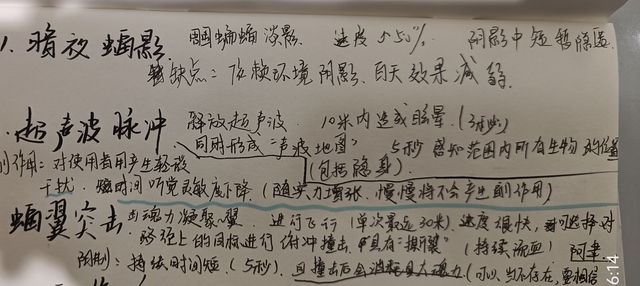 1. 暗夜蝠影 周围蝙蝠淡影. 速度↑50%. 阴影中短暂隐匿.
缺点：依赖环境阴影、白天效果减弱.
超声波脉冲. 释放超声波. 10米内造成眩晕.(3秒)
同时形成"声波地图" 5秒 感知范围内所有生物的位置
(包括隐身).
副作用：对使用者用产生轻微
干扰. 短时间听觉灵敏度下降(随实力增涨. 慢慢将不会产生副作用)
蝠翼突击 由魂力凝聚翼. 进行飞行(单次最远30米). 速度很快, 可选择对
路径上的目标进行俯冲撞击 具有"撕裂"(持续流血)
限制：持续时间短(5秒). 且撞击后会消耗大魂力(可以当不存在, 要相信
6:14